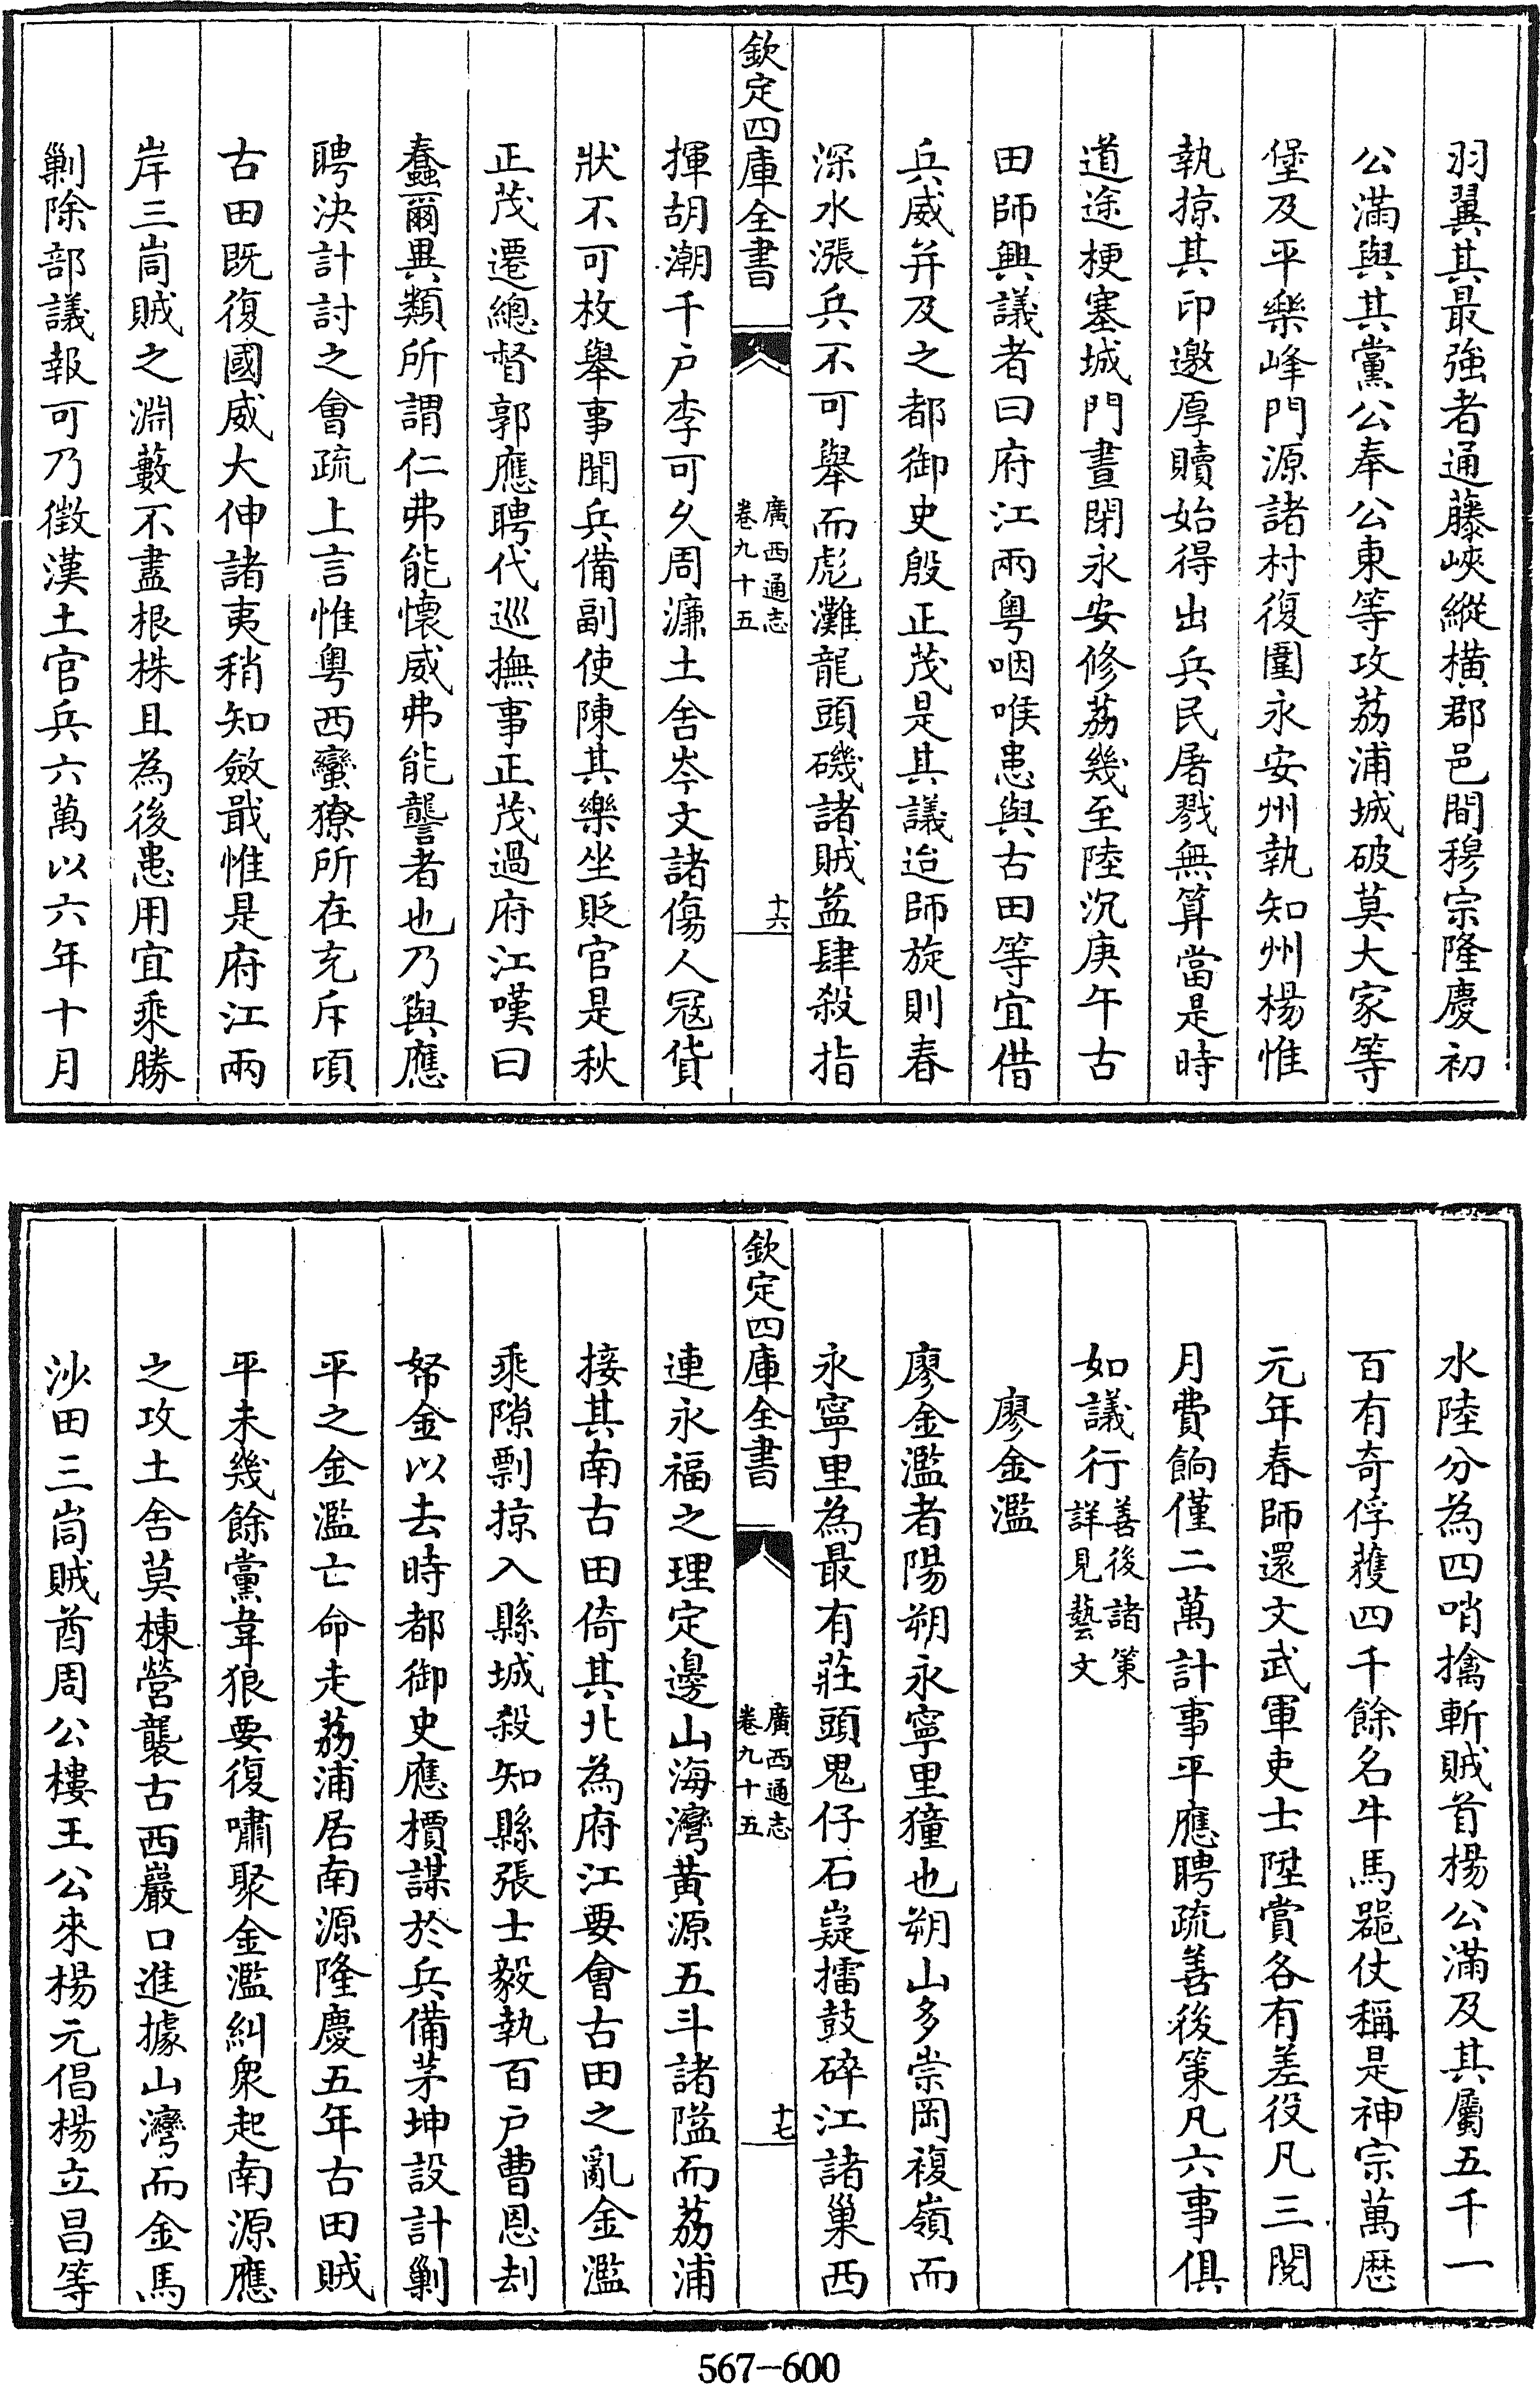 羽翼其最強者通藤峽縱橫郡邑間穆宗隆慶初
公滿與其黨公奉公東等攻荔浦城破莫大家等
堡及平樂峰門源諸村復圍永安州執知州楊惟
執掠其印邀厚贖始得出兵民屠戮無算當是時
道途梗塞城門晝閉永安修荔幾至陸沉庚午古
田師興議者曰府江兩粵咽喉患與古田等宜借
兵威并及之都御史殷正茂是其議迨師旋則春
深水漲兵不可舉而彪灘龍頭磯諸賊益肆殺指
欽定四庫全書
廣西通志
卷九十五
十六
揮胡潮千户李可久周濂土舍岑文諸傷人冦貨
狀不可枚舉事聞兵備副使陳其樂坐貶官是秋
正茂遷總督郭應聘代巡撫事正茂過府江嘆曰
蠢爾異類所謂仁弗能懷威弗能讋者也乃與應
聘決計討之會疏上言惟粵西蠻獠所在充斥項
古田既復國威大伸諸夷稍知斂戢惟是府江兩
岸三峝賊之淵藪不盡根株且為後患用宜乘勝
剿除部議報可乃徵漢土官兵六萬以六年十月
水陸分為四哨擒斬賊首楊公滿及其屬五千一
百有奇俘獲四千餘名牛馬噐仗稱是神宗萬歷
元年春師還文武軍吏士陞賞各有差役凡三閱
月費餉僅二萬計事平應聘疏善後策凡六事俱
如議行善後諸策詳見藝文
廖金濫
廖金濫者陽朔永寧里獞也朔山多崇岡複嶺而
永寧里為最有莊頭鬼仔石嶷擂鼓碎江諸巢西
欽定四庫全書
廣西通志
卷九十五
十七
連永福之理定邊山海灣黃源五斗諸隘而荔浦
接其南古田倚其北為府江要會古田之亂金濫
乘隙剽掠入縣城殺知縣張士毅執百户曹恩刦
帑金以去時都御史應檟謀於兵備茅坤設計剿
平之金濫亡命走荔浦居南源隆慶五年古田賊
平未幾餘黨韋狼要復嘯聚金濫糾衆起南源應
之攻土舍莫棟營襲古西巖口進據山灣而金馬
沙田三峝賊酋周公樓王公來楊元倡楊立昌等
567-600